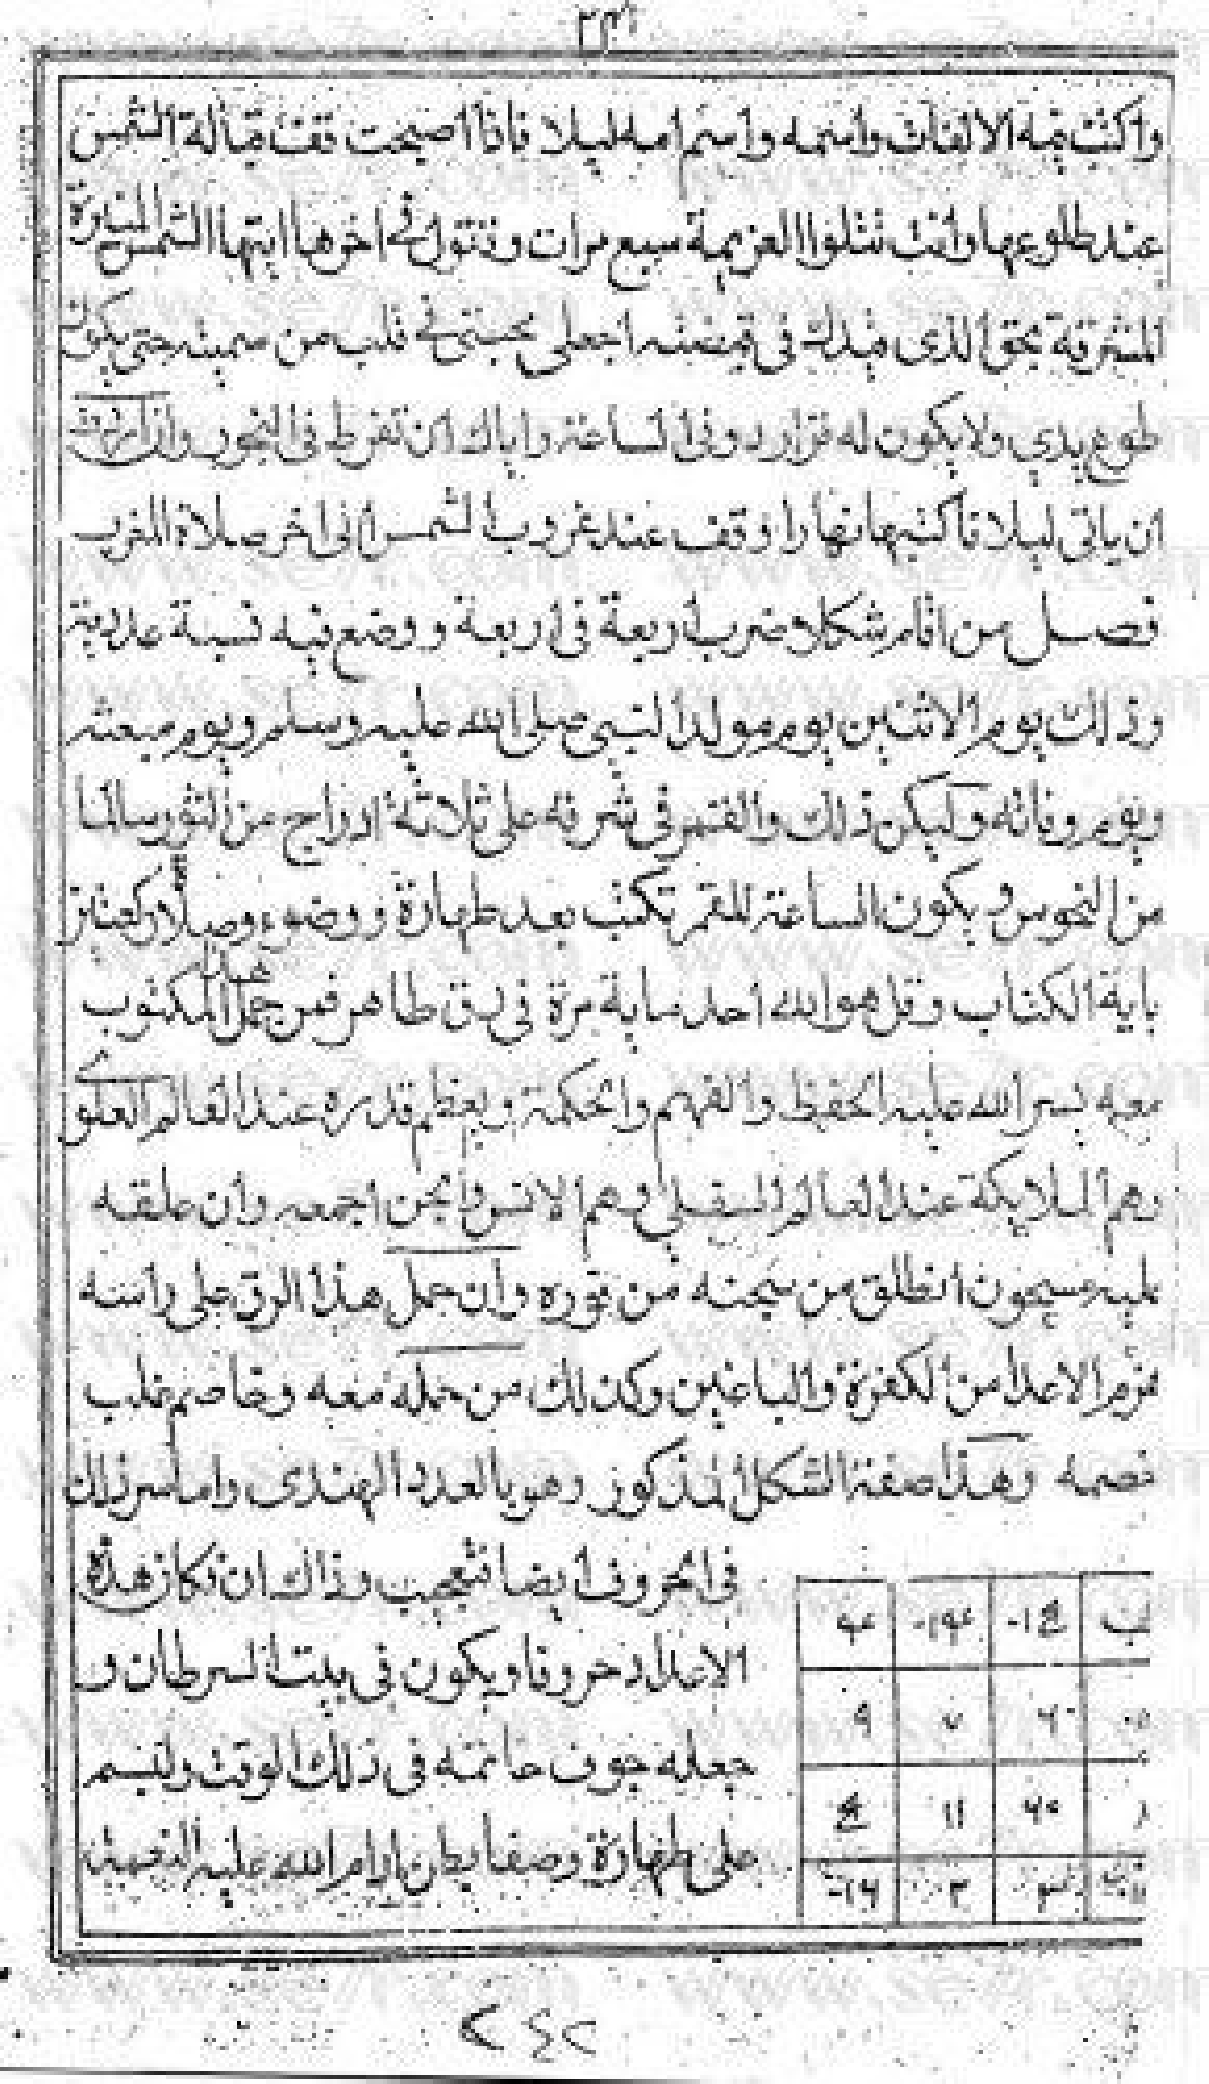 واكتب فيه الالفات واسمه واسم امه ليلا فاذا اصبحت قف قبالة الشمس
عند طلوعها وانت تتلوا العزيمة سبع مرات وتقول في اخرها ايتها الشمس المنيرة
المشرقة بحق الذى في قبضته اجعلى محبتي في قلب من سميته حتى يكون
طوع يدي ولا يكون له قرار دونى الساعة واياك ان تفرط فى البخور وان
ان ياتى ليلا فاكتبها نهارا وقف عند غروب الشمس الى اخر صلاة المغرب
فصل من اقام شكلا ضرب اربعة فى اربعة ووضع فيه نسبة عددية
وذلك يوم الاثنين يوم مولد النبى صلى الله عليه وسلم ويوم مبعثه
ويوم وفاته وليكن ذلك والقمر فى شرفه على ثلاثة ادراج من الثور سالما
من النحوس ويكون الساعة للقمر تكتب بعد طهارة ووضوء وصلاة ركعتين
باية الكتاب وقل هو الله احد ماية مرة فى رق طاهر فمن حمل هذا المكتوب
معه يسر الله عليه الحفظ والفهم والحكمة ويعظم قدره عند العالم العلوي
وهم الملايكة عند العالم السفلى وهم الانس والجن اجمعه وان علقه
عليه مسجون انطلق من سجنه من فوره وان حمل هذا الرق على راسه
هزم الاعدا من الكفرة والباغين وكذلك من حمله معه وخاصم غلب
خصمه وهذا صفة الشكل المذكور وهو بالعدد الهندى واما سر ذلك
فى الحروف ايضا فعجيب وذلك ان تكان هذه
الاعداد حروفا ويكون فى بيت السرطان و
جعله جوف خاتمه فى ذلك الوقت وليسم
على طهارة وصفا باطن ادام الله عليه
٩ ٧
١١
٢٤٢